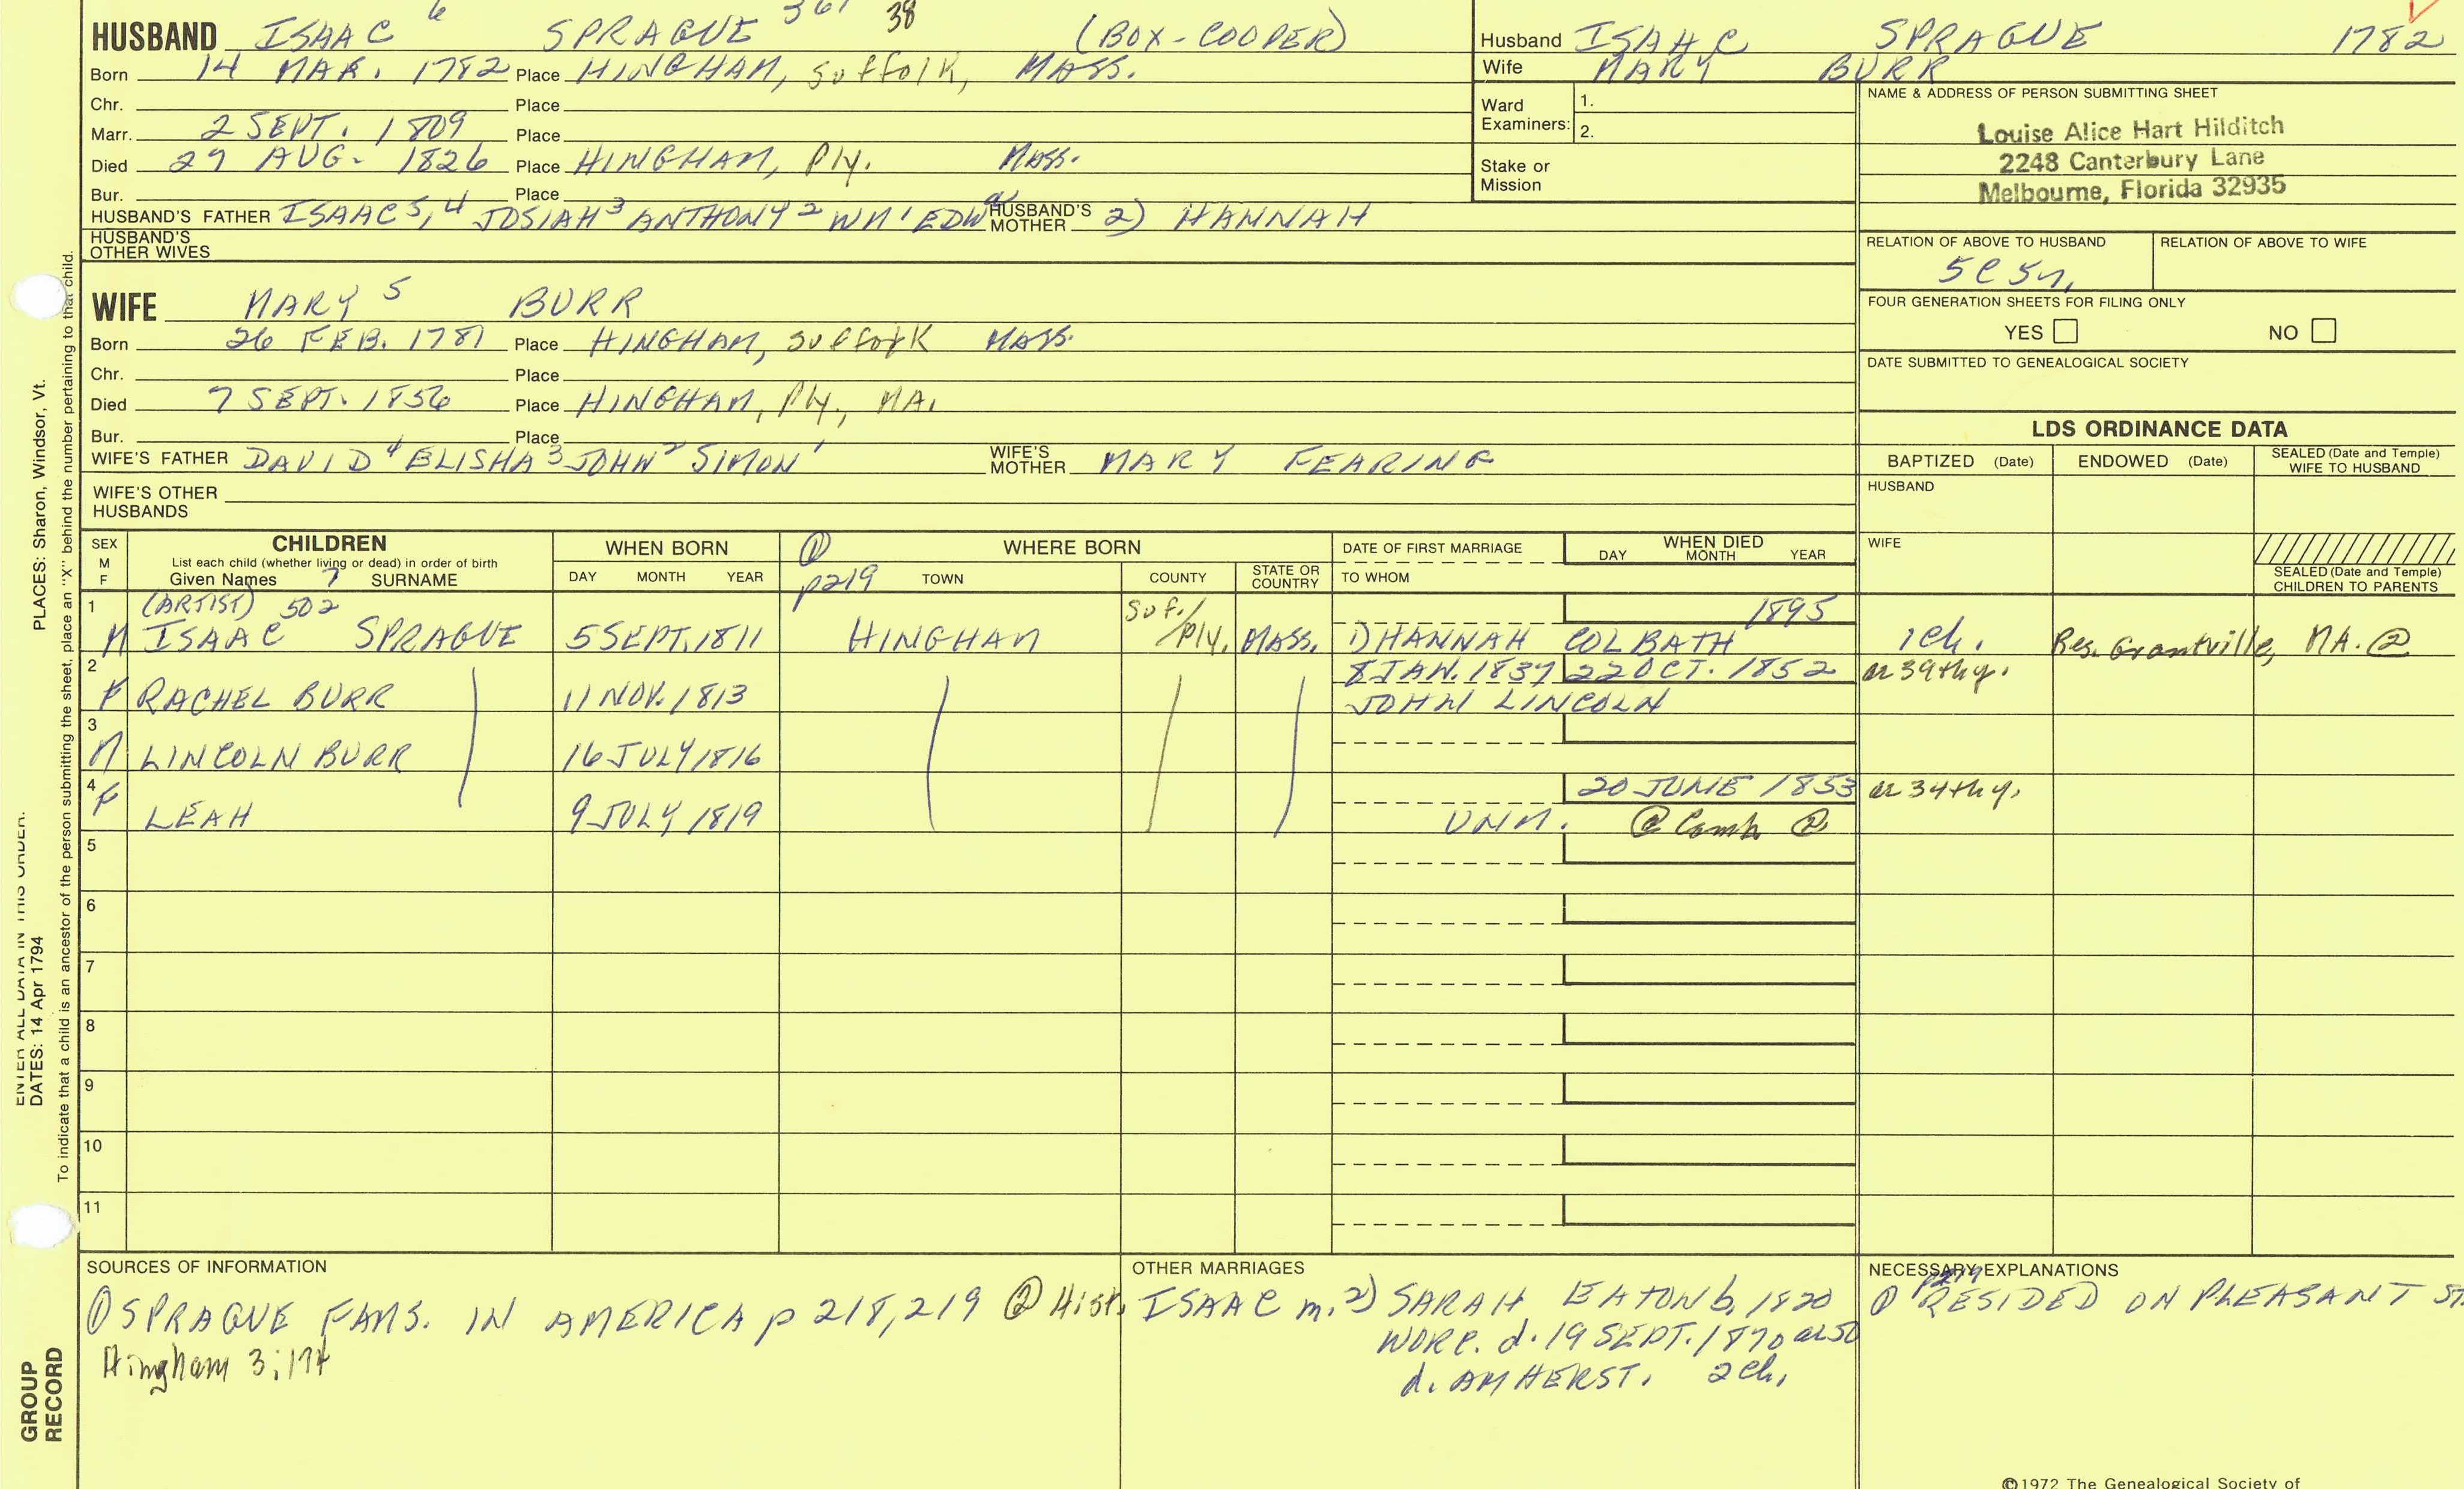 HUSBAND ISAAC 6 SPRAGUE 361 38 (BOX-COOPER)
Born 14 MAR. 1782 Place HINGHAM, Suffolk, MASS.
Chr. Place
Marr. 2 SEPT. 1809 Place
Died 29 AUG. 1826 Place HINGHAM, Ply. MASS.
Bur. Place
HUSBAND'S FATHER ISAAC 5,4 JOSIAH 3 ANTHONY 2 WM 1 EDWd HUSBAND'S MOTHER 2) HANNAH
HUSBAND'S OTHER WIVES
Husband ISAAC SPRAGUE 1782
Wife MARY BURR
Ward Examiners: 1. 2.
Stake or Mission
NAME & ADDRESS OF PERSON SUBMITTING SHEET
Louise Alice Hart Hilditch
2248 Canterbury Lane
Melbourne, Florida 32935
RELATION OF ABOVE TO HUSBAND RELATION OF ABOVE TO WIFE
5C5n.
FOUR GENERATION SHEETS FOR FILING ONLY
YES NO
DATE SUBMITTED TO GENEALOGICAL SOCIETY
WIFE MARY 5 BURR
Born 26 FEB. 1781 Place HINGHAM, Suffolk MASS.
Chr. Place
Died 7 SEPT. 1856 Place HINGHAM, Ply., MA.
Bur. Place
WIFE'S FATHER DAVID 4 ELISHA 3 JOHN 2 SIMON 1 WIFE'S MOTHER MARY FEARING
WIFE'S OTHER HUSBANDS
LDS ORDINANCE DATA
BAPTIZED (Date) ENDOWED (Date) SEALED (Date and Temple) WIFE TO HUSBAND
HUSBAND
WIFE
SEALED (Date and Temple) CHILDREN TO PARENTS
SEX M F CHILDREN WHEN BORN ① WHERE BORN DATE OF FIRST MARRIAGE WHEN DIED
List each child (whether living or dead) in order of birth
DAY MONTH YEAR
Given Names 7 SURNAME DAY MONTH YEAR p219 TOWN COUNTY STATE OR COUNTRY TO WHOM
1 (ARTIST) 502 Suf./ 1895
M ISAAC SPRAGUE 5 SEPT. 1811 HINGHAM Ply. MASS. 1) HANNAH COLBATH 1ch. Res. Grantville, MA. ②
2 8 JAN. 1837 22 OCT. 1852 ae 39th y.
F RACHEL BURR 11 NOV. 1813 JOHN LINCOLN
3
M LINCOLN BURR 16 JULY 1816
4 20 JUNE 1853 ae 34th y.
F LEAH 9 JULY 1819 UNM. @ Camb ②
5
6
7
8
9
10
11
SOURCES OF INFORMATION
① SPRAGUE FAMS. IN AMERICA p 218, 219 ② Hist.
Hingham 3:174
OTHER MARRIAGES
ISAAC m. 2) SARAH EATON b. 1820
WORC. d. 19 SEPT. 1870 ae 50
d. AMHERST. 2 ch.
NECESSARY EXPLANATIONS
p219
① RESIDED ON PLEASANT ST.
©1972 The Genealogical Society of
PLACES: Sharon, Windsor, Vt.
ENTER ALL DATA IN THIS ORDER:
DATES: 14 Apr 1794
To indicate that a child is an ancestor of the person submitting the sheet, place an "X" behind the number pertaining to that child.
GROUP RECORD